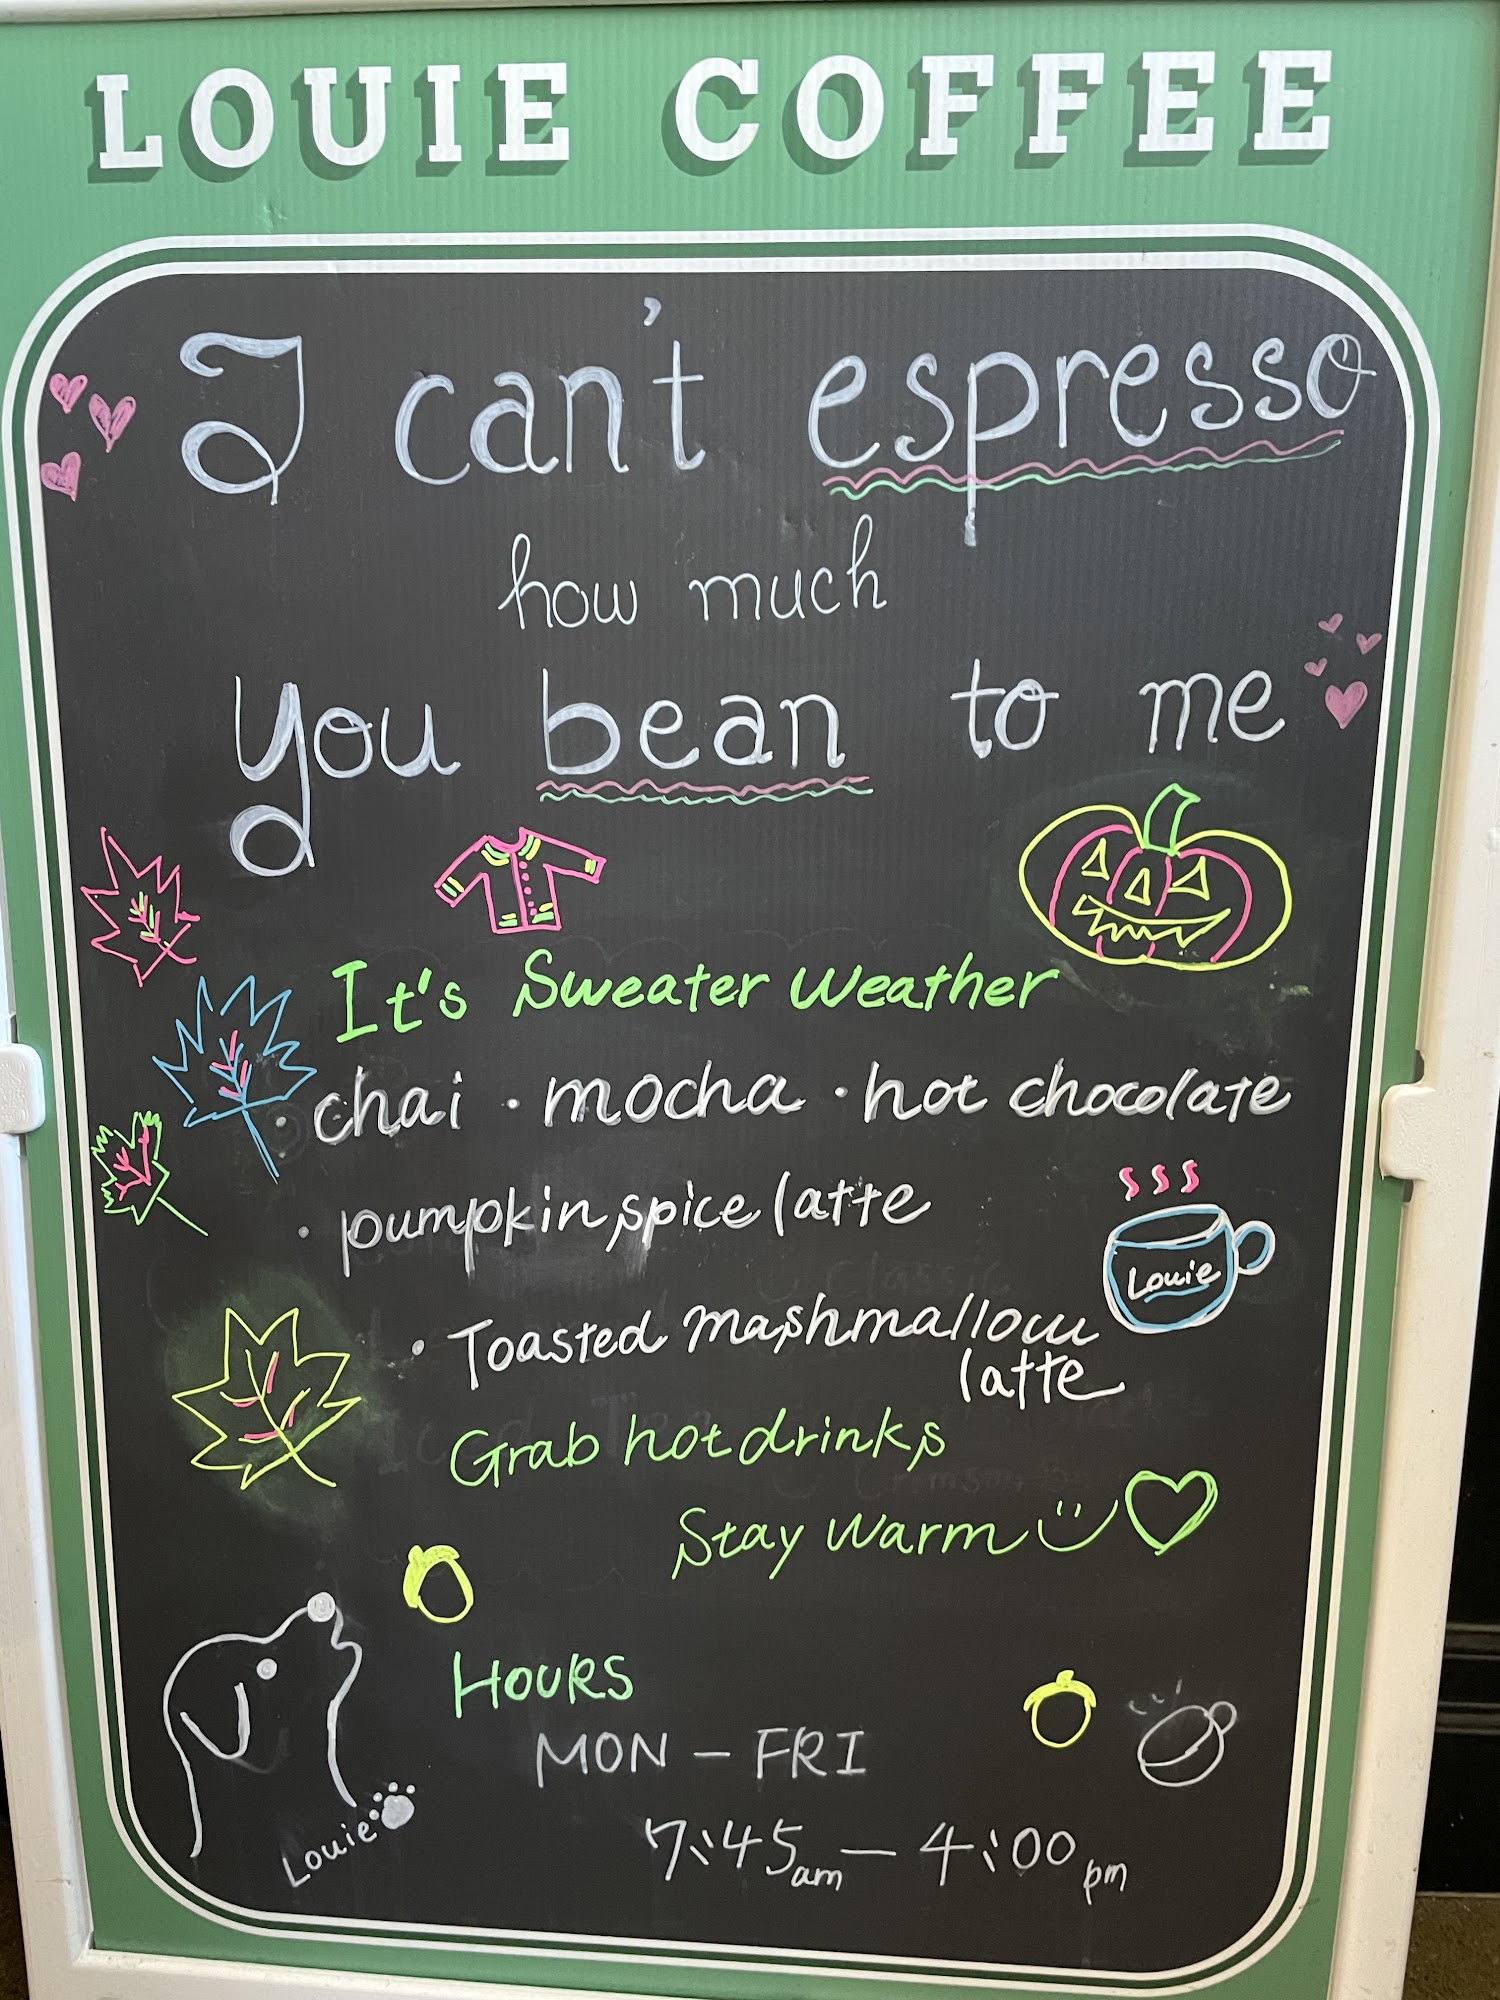 LOUIE COFFEE
I can't espresso
how much
you bean to me
It's Sweater Weather
· chai · mocha · hot chocolate
· pumpkin spice latte
Louie
· Toasted mashmallow
latte
Grab hot drinks
Stay warm
Hours
MON – FRI
7:45am – 4:00 pm
Louie